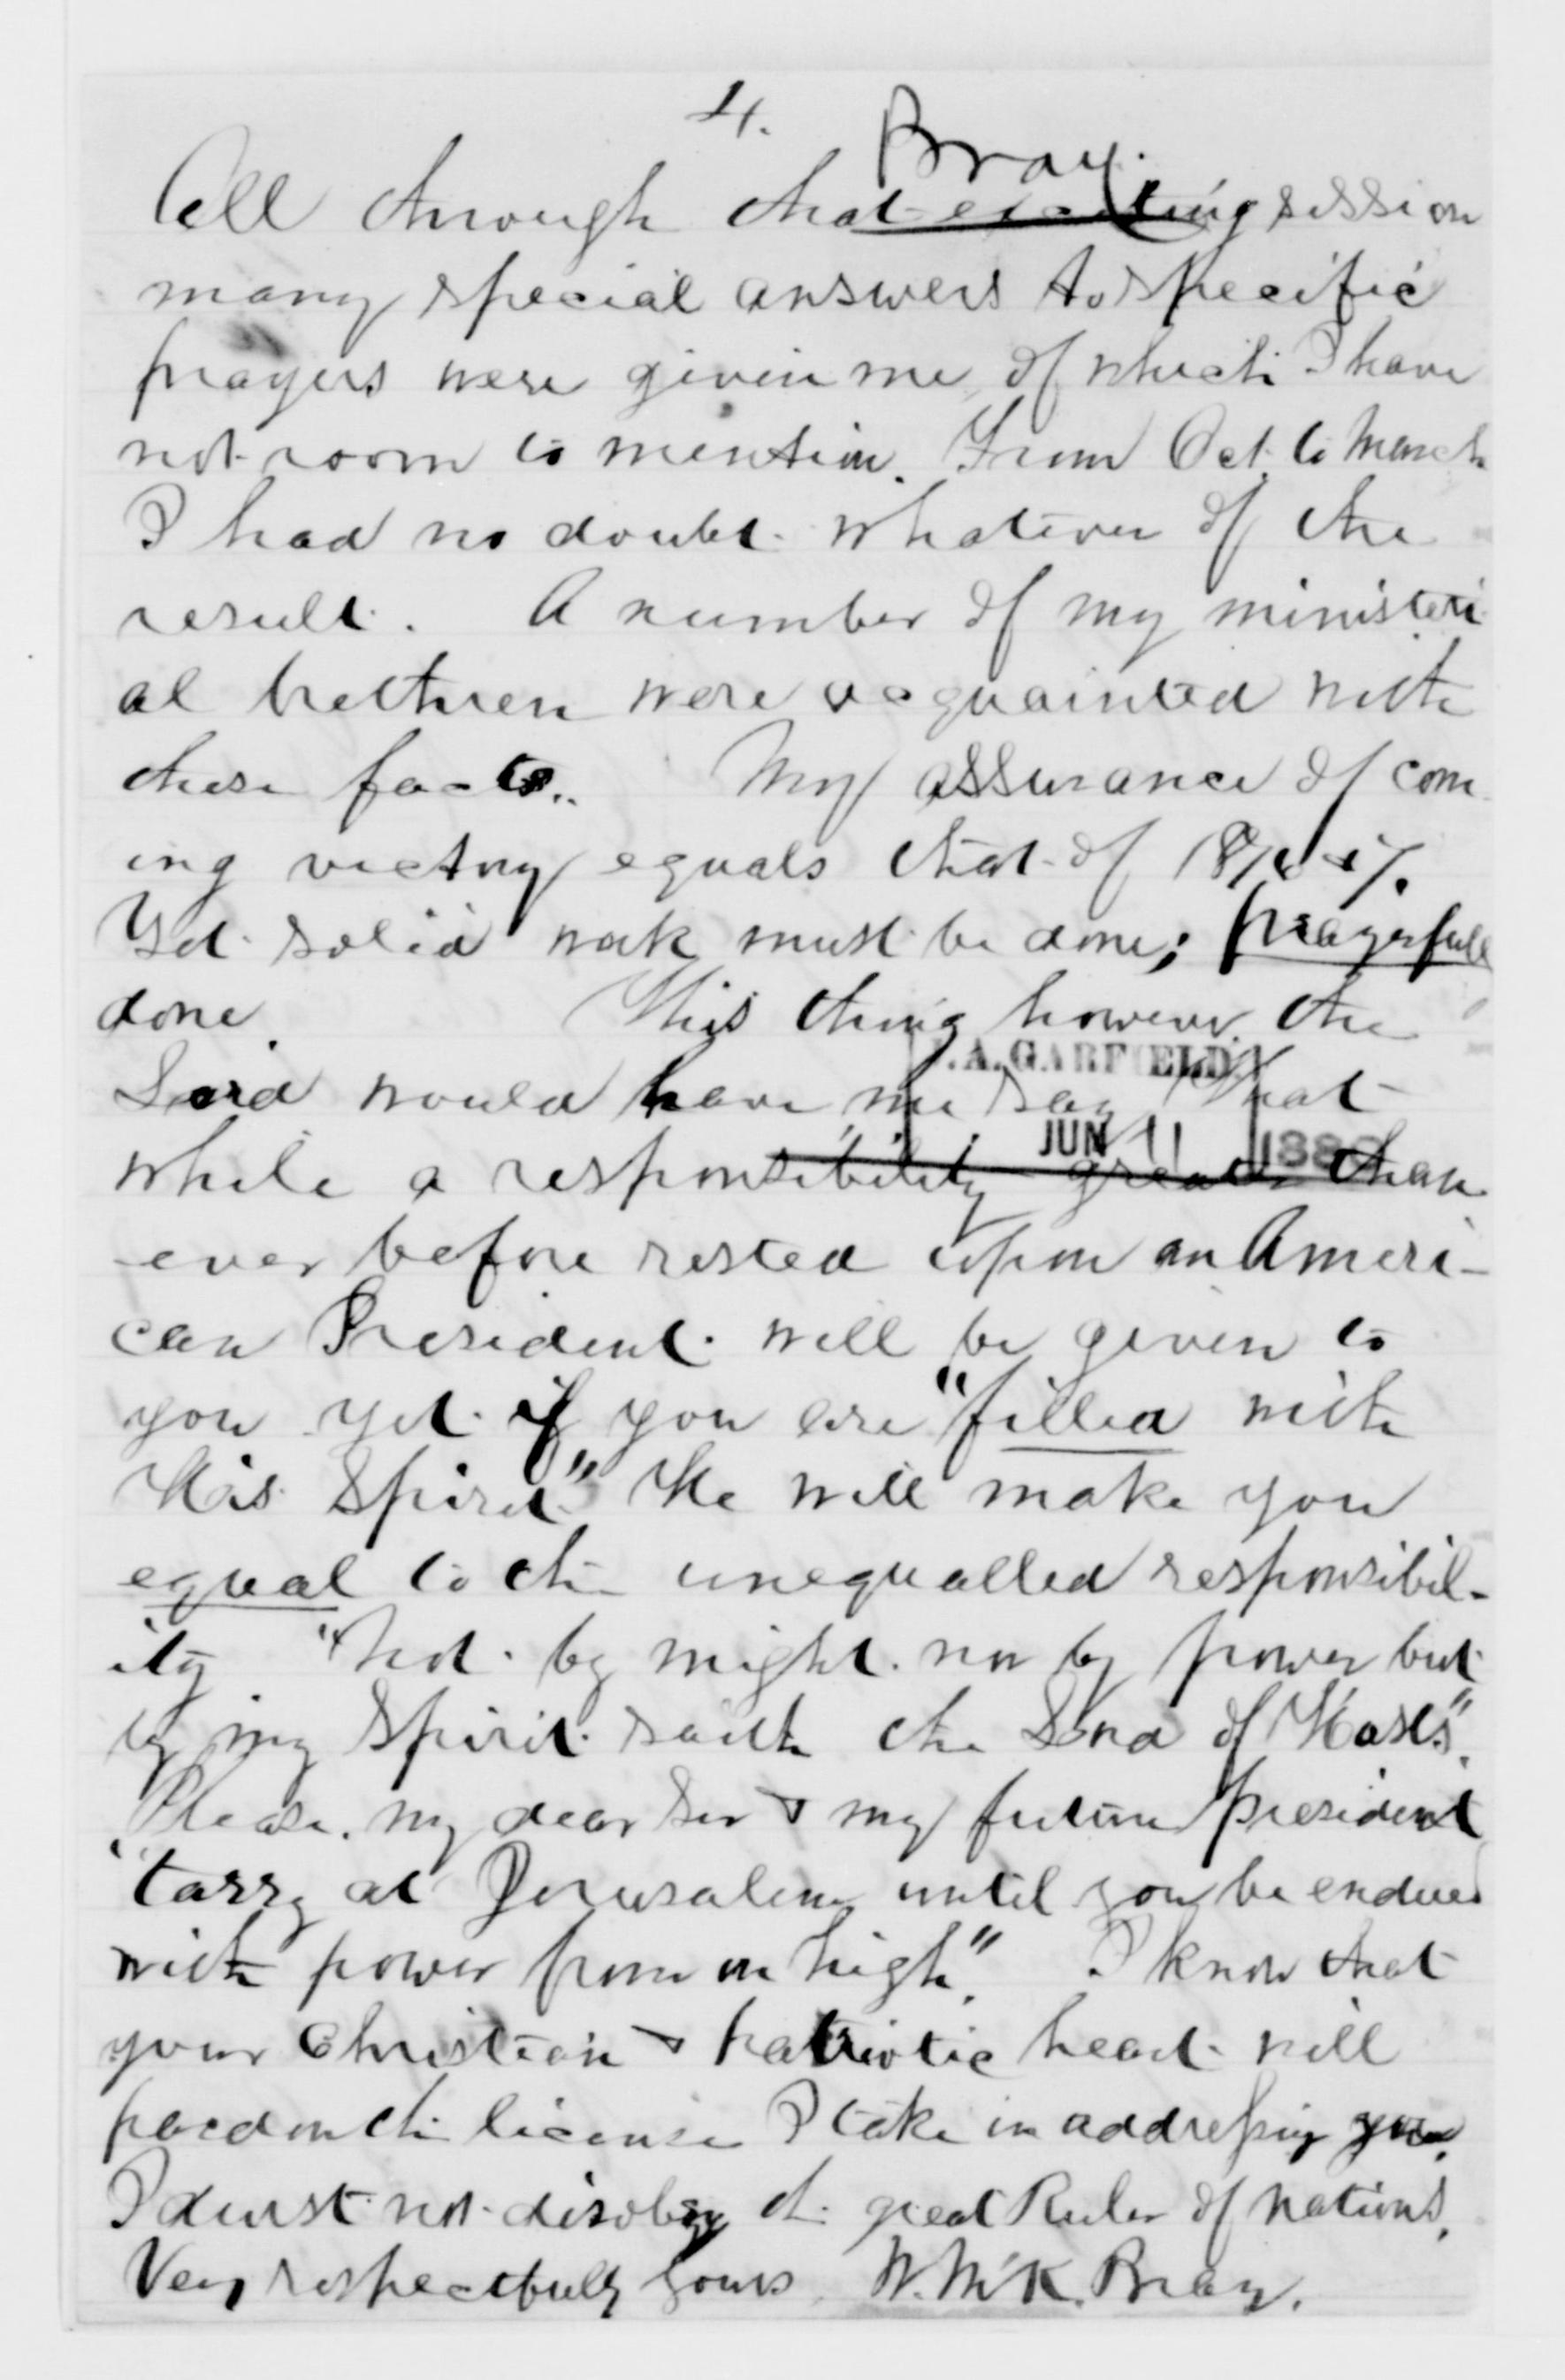 4.
Bray.
All through that exciting session
many special answers to specific
prayers were given me, of which I have
not room to mention. From Oct. to March
I had no doubt whatever of the
result. A number of my ministeri
al brethren were acquainted with
these facts. My assurance of com-
ing victory equals that of
Yet solid work must be done; prayerfull
done. This thing however the
J.A. GARFIELD.
Lord would have me say, that
JUN 11 1880
while a responsibility greater than
ever before rested upon an Ameri-
can President will be given to
you yet if you are "filled with
His Spirit" He will make you
equal to the unequalled responsibil-
ity "Not by might nor by power but
by my Spirit saith the Lord of Hosts".
Please, my dear Sir & my future president
"tarry at Jerusalem until you be endued
with power from on high." I know that
your Christian & patriotic heart will
pardon the license I take in addressing you.
I durst not disobey the great Ruler of nations.
Very respectfully yours, W. McK. Bray.